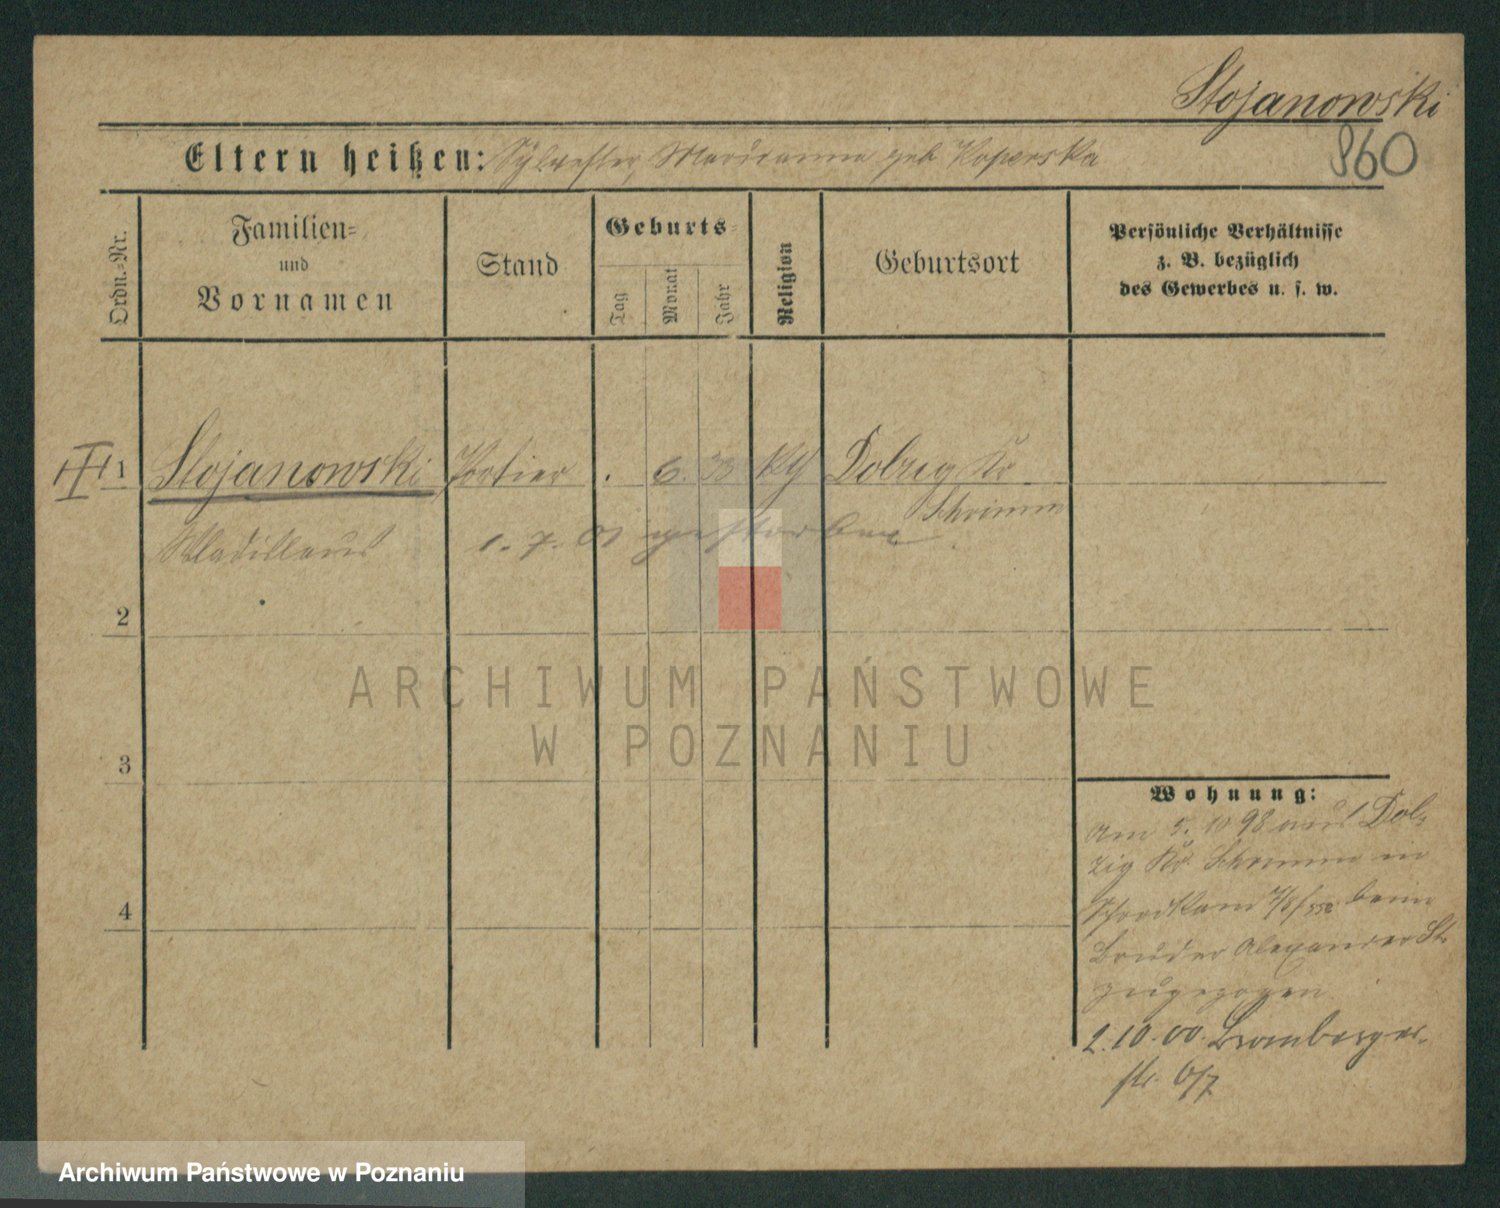 Stojanowski
860
Eltern heißen: Sylvester, Marianna geb Koperska
Ordn.=Nr.
Familien=
und
Vornamen
Stand
Geburts=
Tag
Monat
Jahr
Religion
Geburtsort
Persönliche Verhältnisse
z. B. bezüglich
des Gewerbes u. s. w.
1 Stojanowski Portier 6. kg Dolzig Kr
Schrimm
Wladislaus 1. 7. 01 gestorben
2
3
4
Wohnung:
Am 5. 10 98 aus Dol=
zig Kr. Schrimm in
beim
Bruder Alexander St.
zugezogen
2.10.00. Bromberger=
str. 6/7
ARCHIWUM PAŃSTWOWE
W POZNANIU
Archiwum Państwowe w Poznaniu